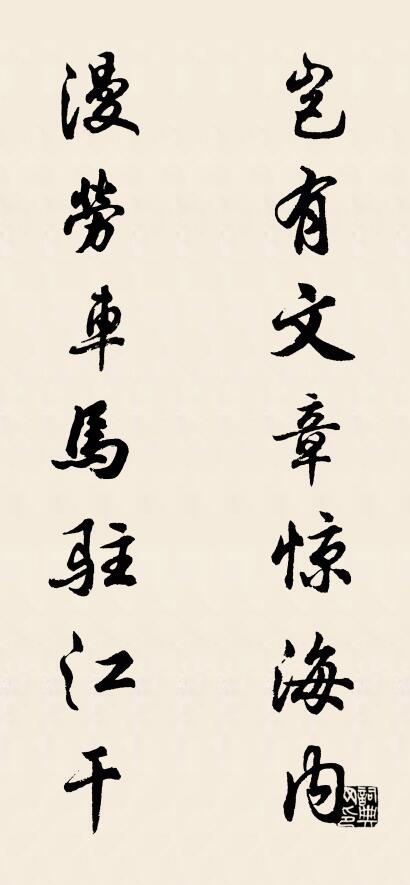 岂有文章惊海内
漫勞車馬駐江干